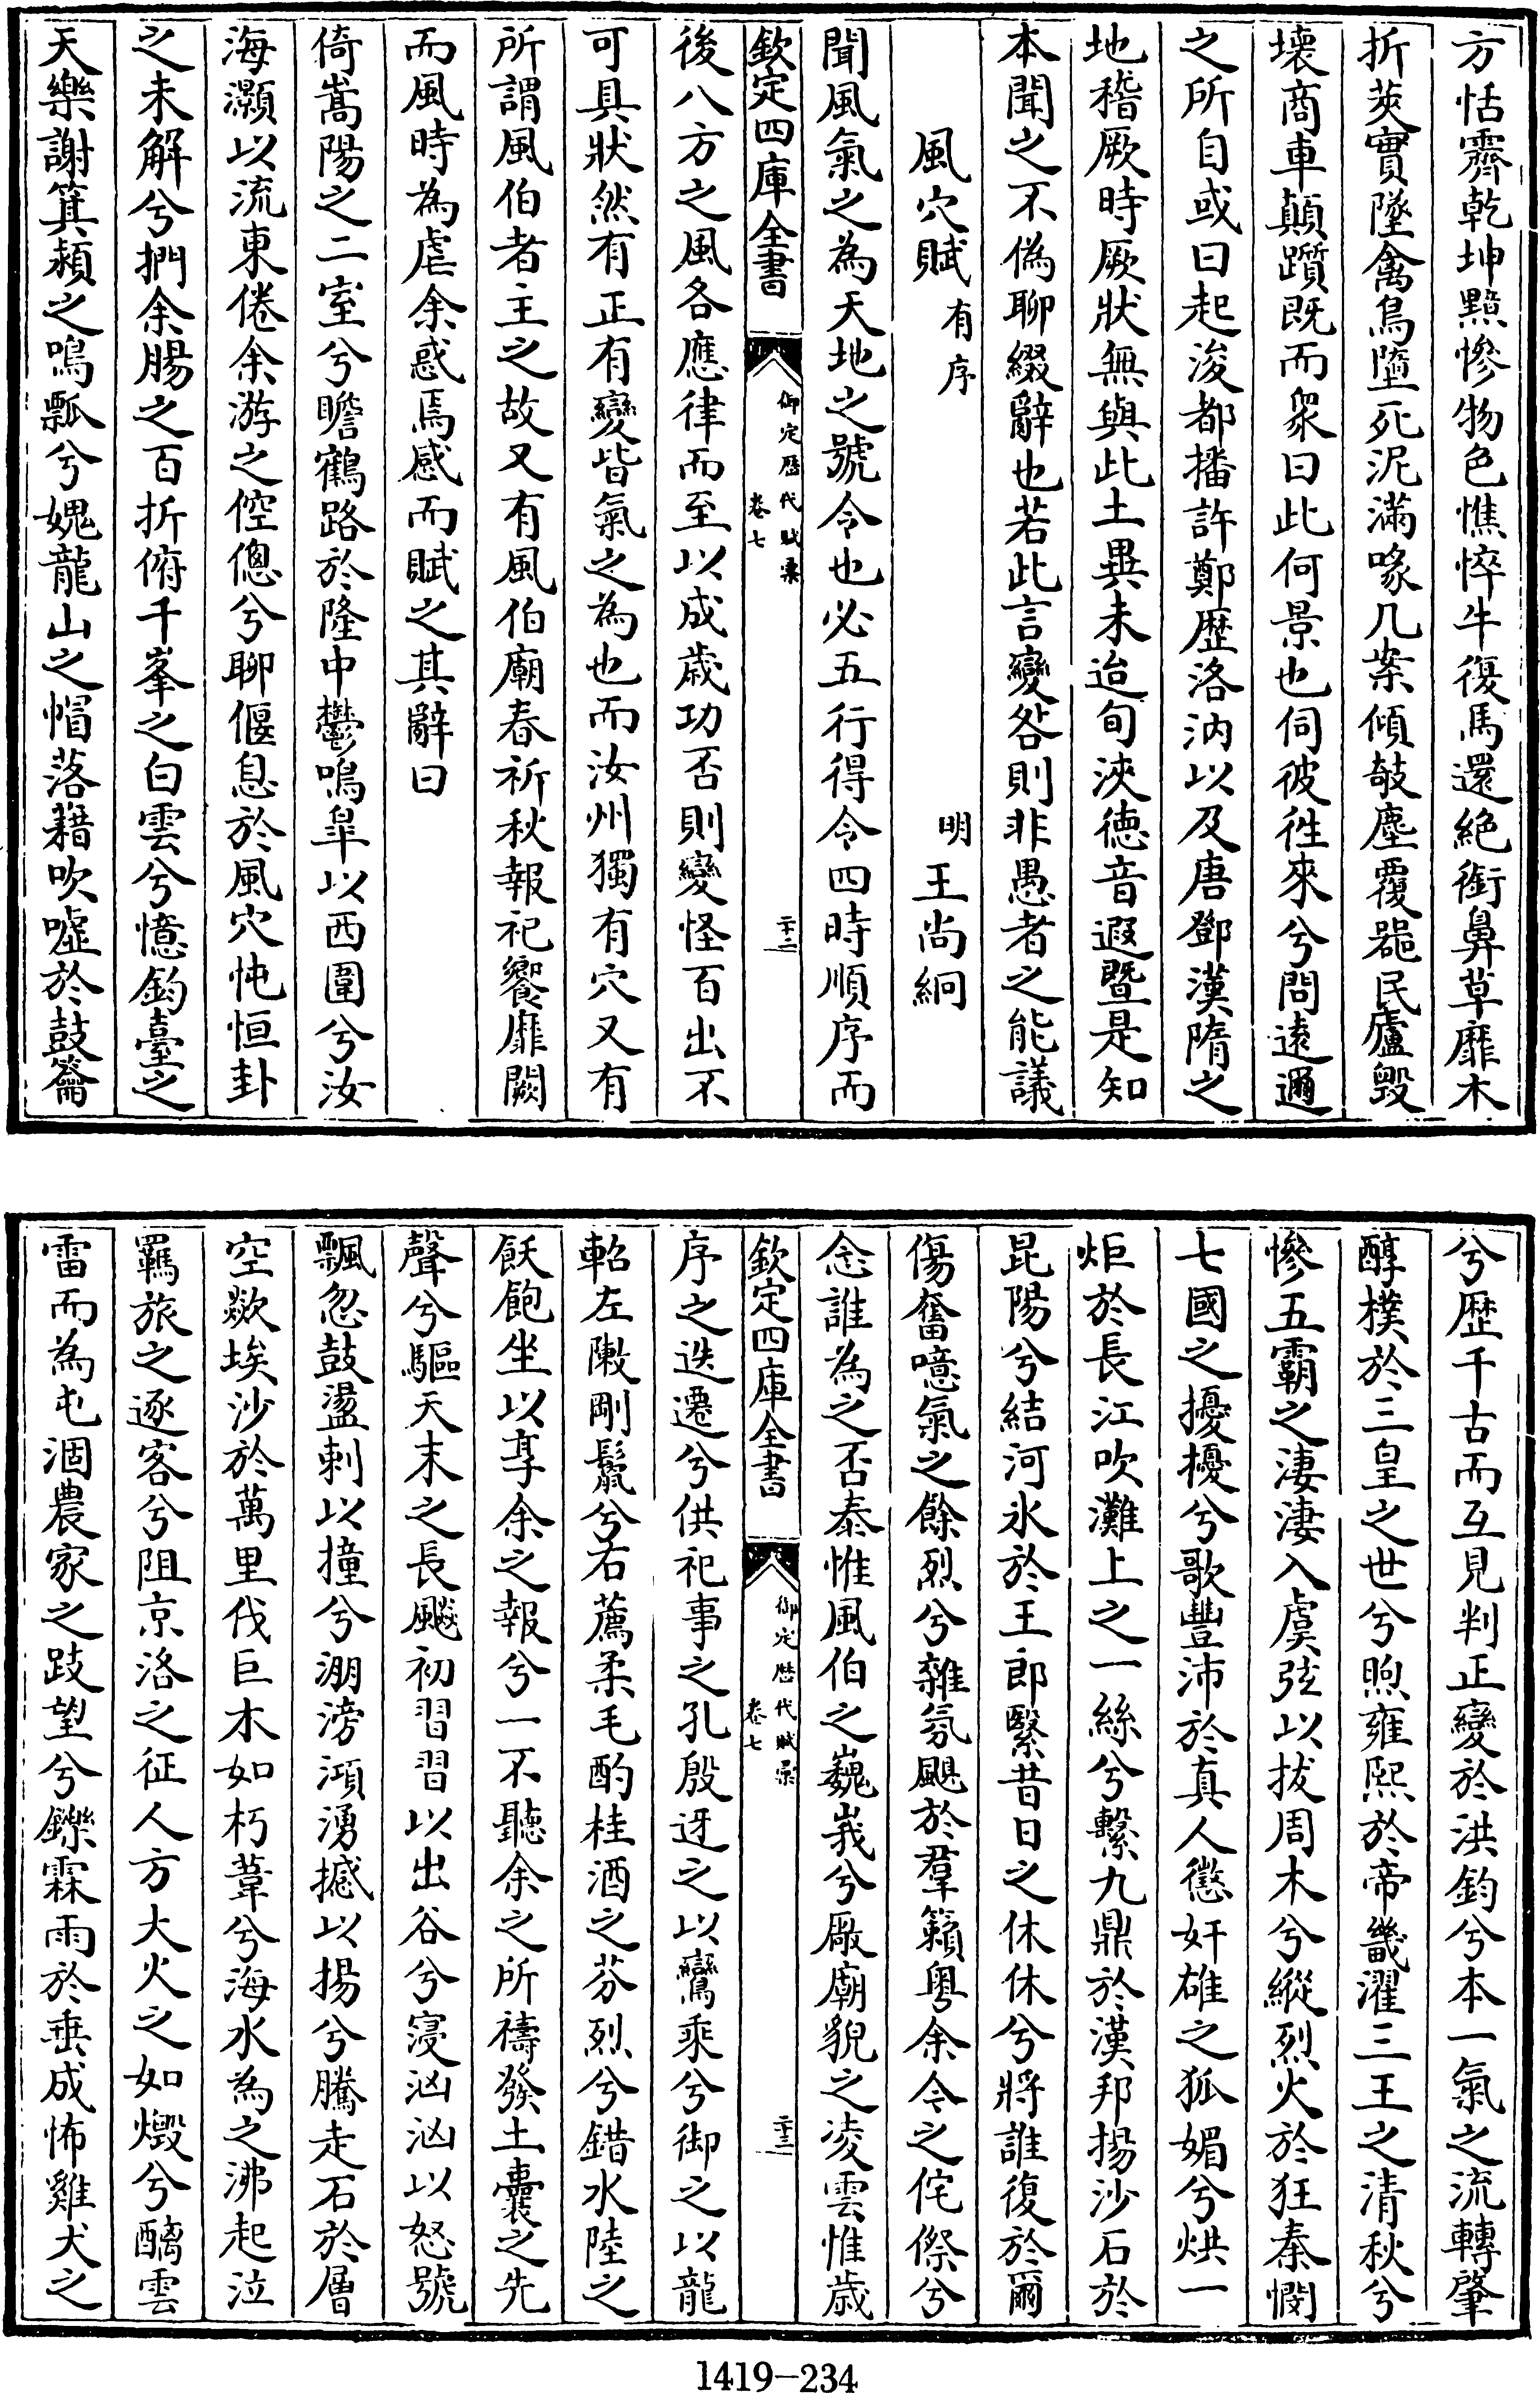 方恬霽乾坤黯慘物色憔悴牛復馬還絶銜鼻草靡木
折莢實墜禽鳥墮死泥滿喙几案傾攲塵覆噐民廬毁
壊商車顛躓既而衆曰此何景也伺彼徃來兮問遠邇
之所自或曰起浚都播許鄭歴洛汭以及唐鄧漢隋之
地稽厥時厥狀無與此土異未迨旬浹徳音遐曁是知
本聞之不偽聊綴辭也若此言變咎則非愚者之能議
風穴賦 有序 明 王尚絅
聞風氣之為天地之號令也必五行得令四時順序而
欽定四庫全書 御定歴代賦彚 卷七 二十二
後八方之風各應律而至以成歲功否則變怪百出不
可具狀然有正有變皆氣之為也而汝州獨有穴又有
所謂風伯者主之故又有風伯廟春祈秋報祀饗靡闕
而風時為虐余惑焉感而賦之其辭曰
倚嵩陽之二室兮瞻鶴路於隆中鬱鳴臯以西圍兮汝
海灝以流東倦余游之倥傯兮聊偃息於風穴忳恒卦
之未解兮捫余腸之百折俯千峯之白雲兮憶鈞臺之
天樂謝箕潁之鳴瓢兮媿龍山之帽落藉吹噓於鼓籥
兮歴千古而互見判正變於洪鈞兮本一氣之流轉肇
醇樸於三皇之世兮煦雍熙於帝畿濯三王之清秋兮
慘五霸之淒淒入虞弦以拔周木兮縱烈火於狂秦閔
七國之擾擾兮歌豐沛於真人懲奸雄之狐媚兮烘一
炬於長江吹灘上之一絲兮繫九鼎於漢邦揚沙石於
昆陽兮結河氷於王郎繄昔日之休休兮將誰復於爾
傷奮噫氣之餘烈兮雜氛颸於羣籟粤余令之侘傺兮
念誰為之否泰惟風伯之巍峩兮厰廟貌之凌雲惟歲
欽定四庫全書 御定歴代賦彚 卷七 二十三
序之迭遷兮供祀事之孔殷迓之以鸞乘兮御之以龍
軺左陳剛鬛兮右薦柔毛酌桂酒之芬烈兮錯水陸之
飫飽坐以享余之報兮一不聽余之所禱發土囊之先
聲兮驅天末之長飈初習習以出谷兮寖汹汹以怒號
飄忽鼓盪刺以撞兮淜滂澒湧撼以揚兮騰走石於層
空歘埃沙於萬里伐巨木如朽葦兮海水為之沸起泣
羈旅之逐客兮阻京洛之征人方大火之如燬兮醨雲
雷而為屯涸農家之跂望兮鑠霖雨於垂成怖雞犬之
1419-234